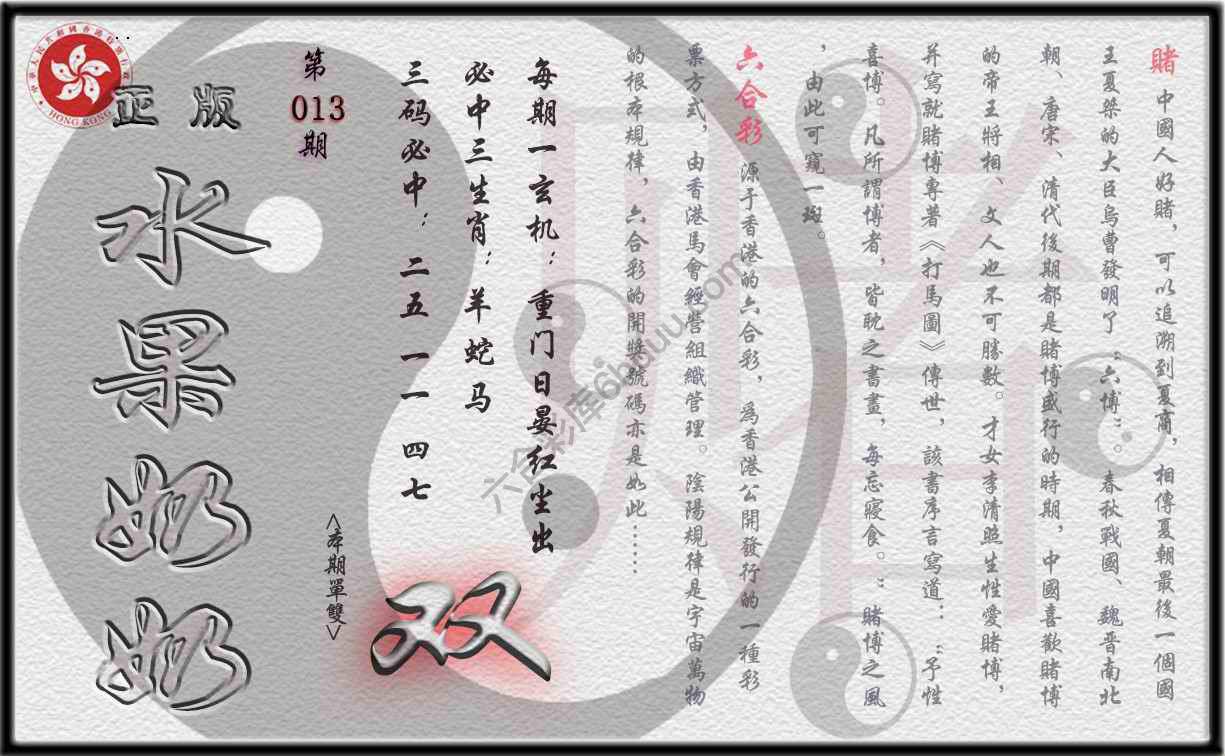 賭 中國人好賭，可以追溯到夏商，相傳夏朝最後一個國
王夏桀的大臣烏曹發明了“六博”。春秋戰國、魏晋南北
朝、唐宋、清代後期都是賭博盛行的時期，中國喜歡賭博
的帝王將相、文人也不可勝數。才女李清照生性愛賭博，
并寫就賭博專著《打馬圖》傳世，該書序言寫道：“予性
喜博。凡所謂博者，皆耽之書畫，每忘寢食。”賭博之風
，由此可窺一斑。
六合彩 源于香港的六合彩，爲香港公開發行的一種彩
票方式，由香港馬會經營組織管理。陰陽規律是宇宙萬物
的根本規律，六合彩的開獎號碼亦是如此……
每期一玄机：重门日晏红尘出
必中三生肖：羊蛇马
三码必中：二五 一一 四七
第
013
期
<本期單雙>
双
正版
水果奶奶
HONG KONG
六合彩库6hduu.com